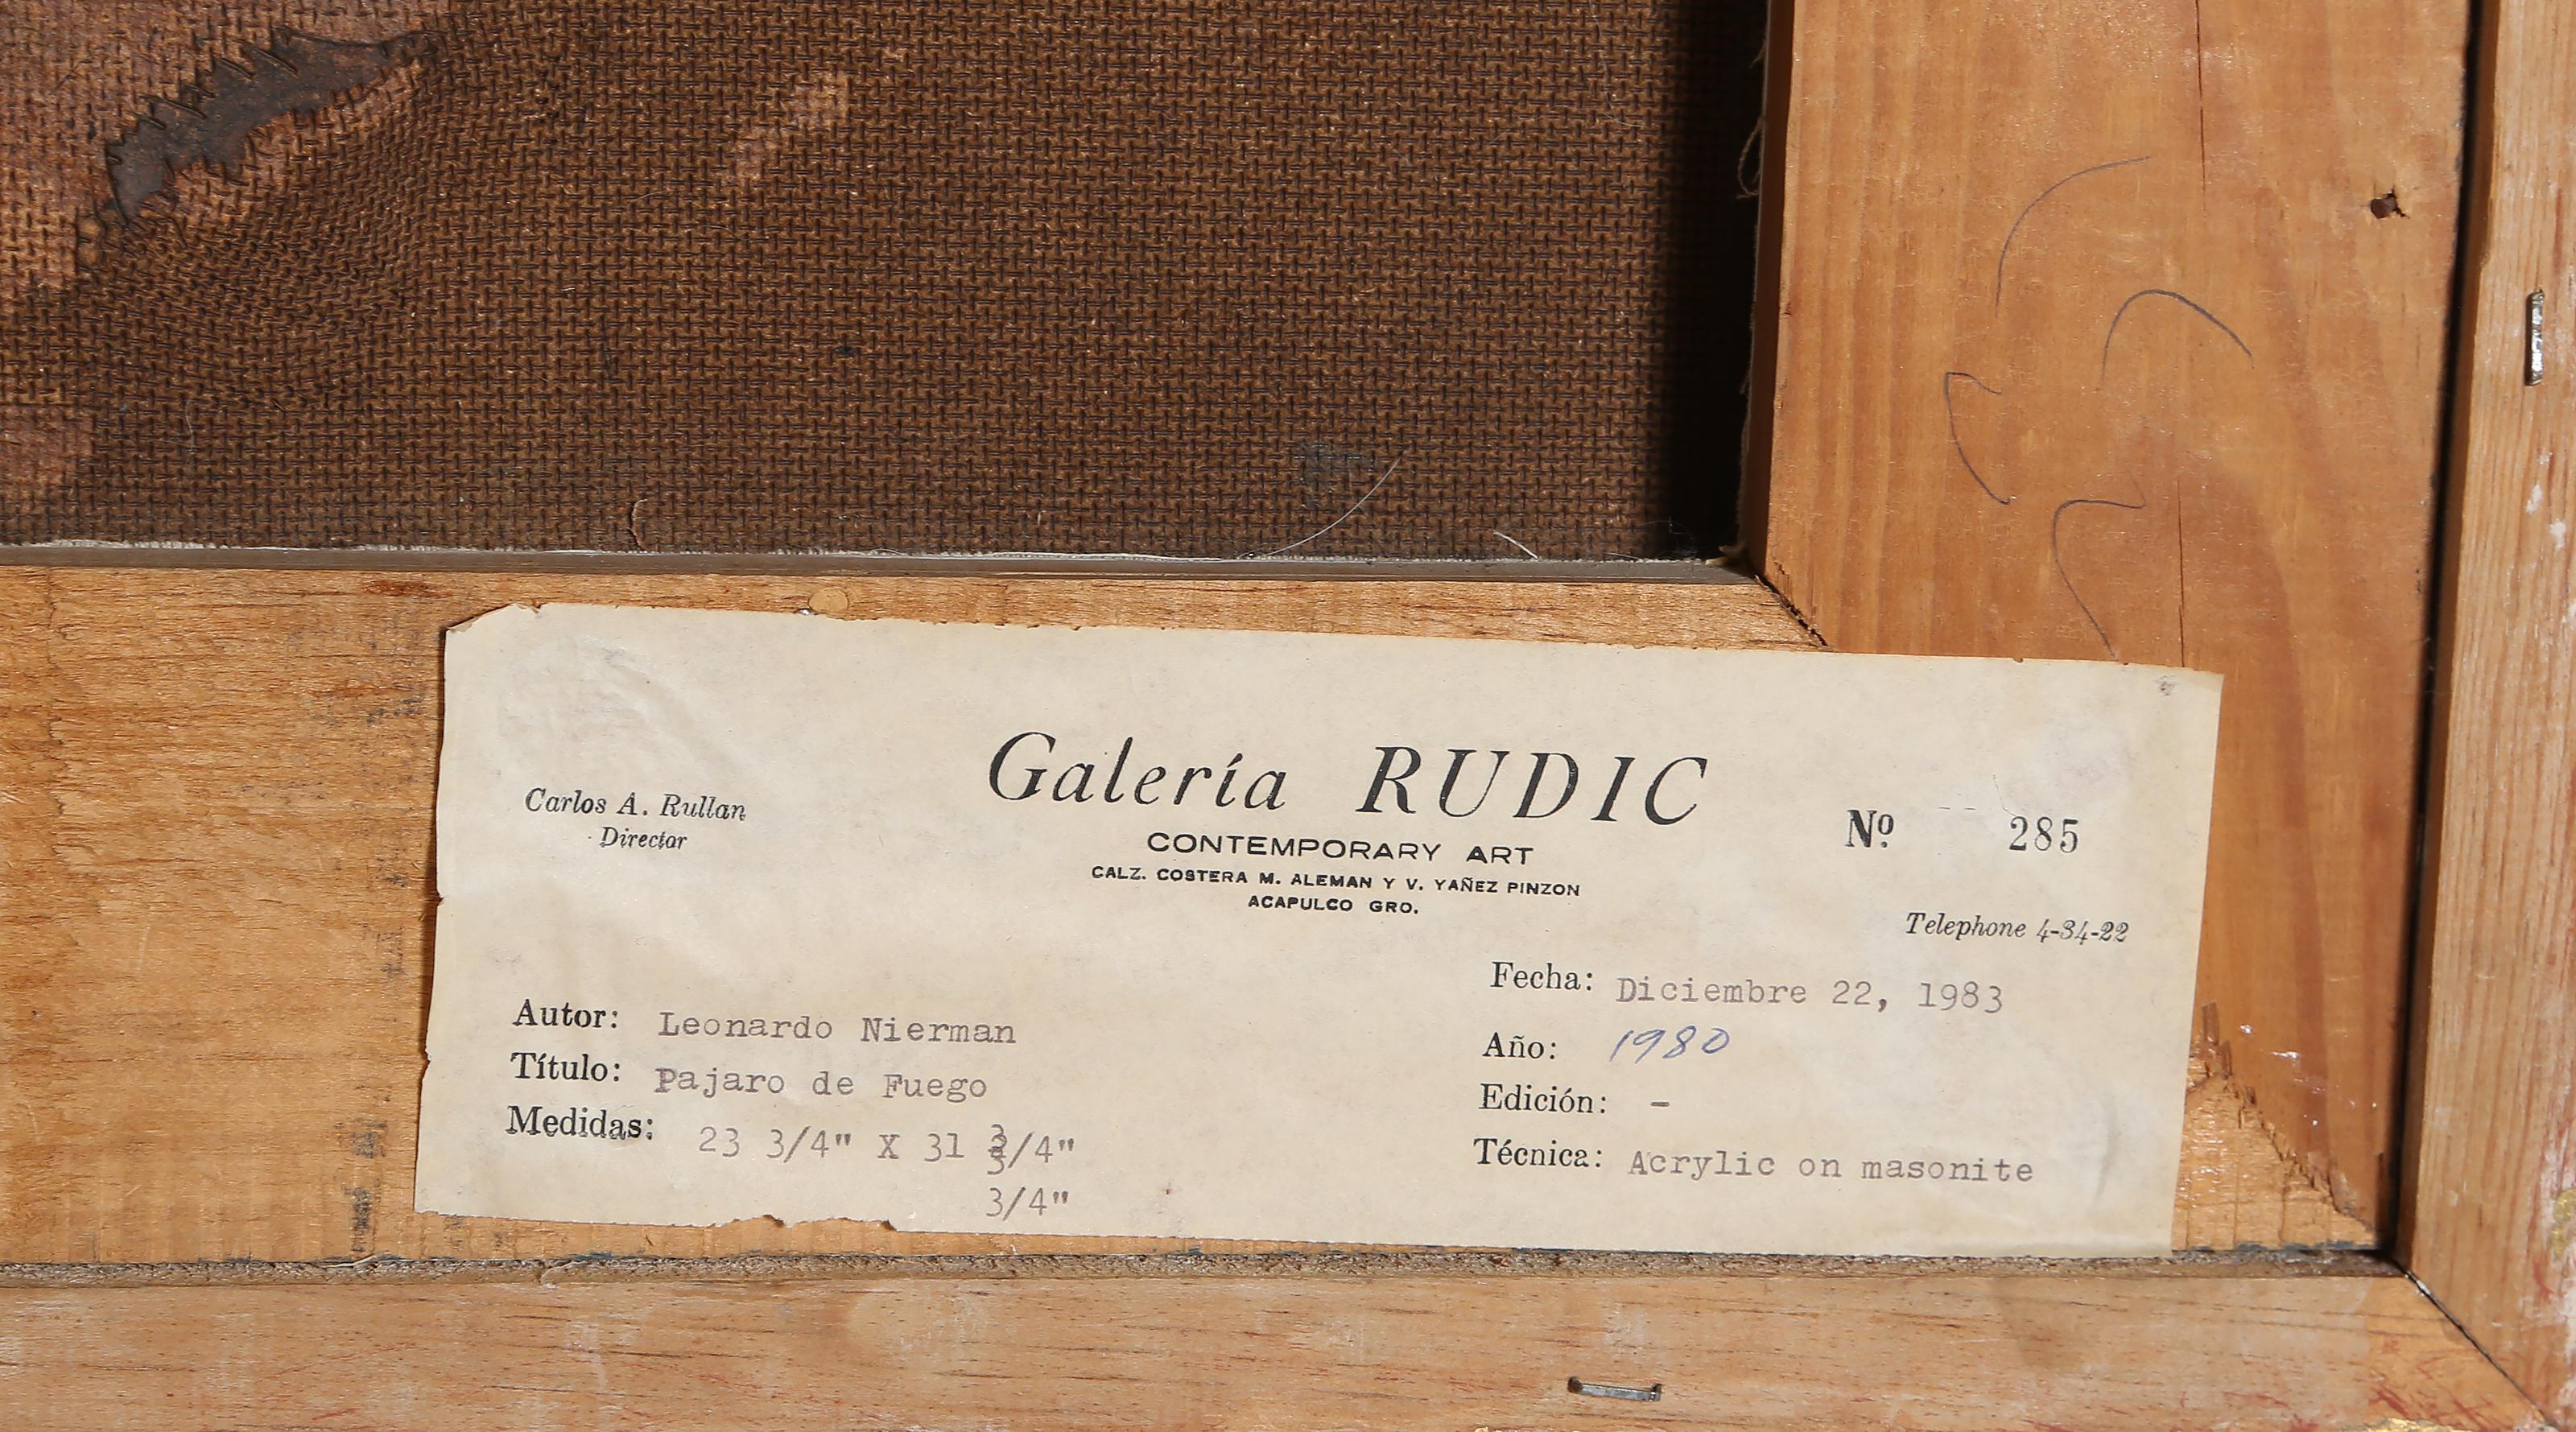 Galería RUDIC
Carlos A. Rullan
Director
CONTEMPORARY ART
Nº 285
CALZ. COSTERA M. ALEMAN Y V. YAÑEZ PINZON
ACAPULCO GRO.
Telephone 4-34-22
Fecha: Diciembre 22, 1983
Autor: Leonardo Nierman
Año: 1980
Título: Pajaro de Fuego
Edición: -
Medidas: 23 3/4" X 31 3/4"
3/4"
Técnica: Acrylic on masonite